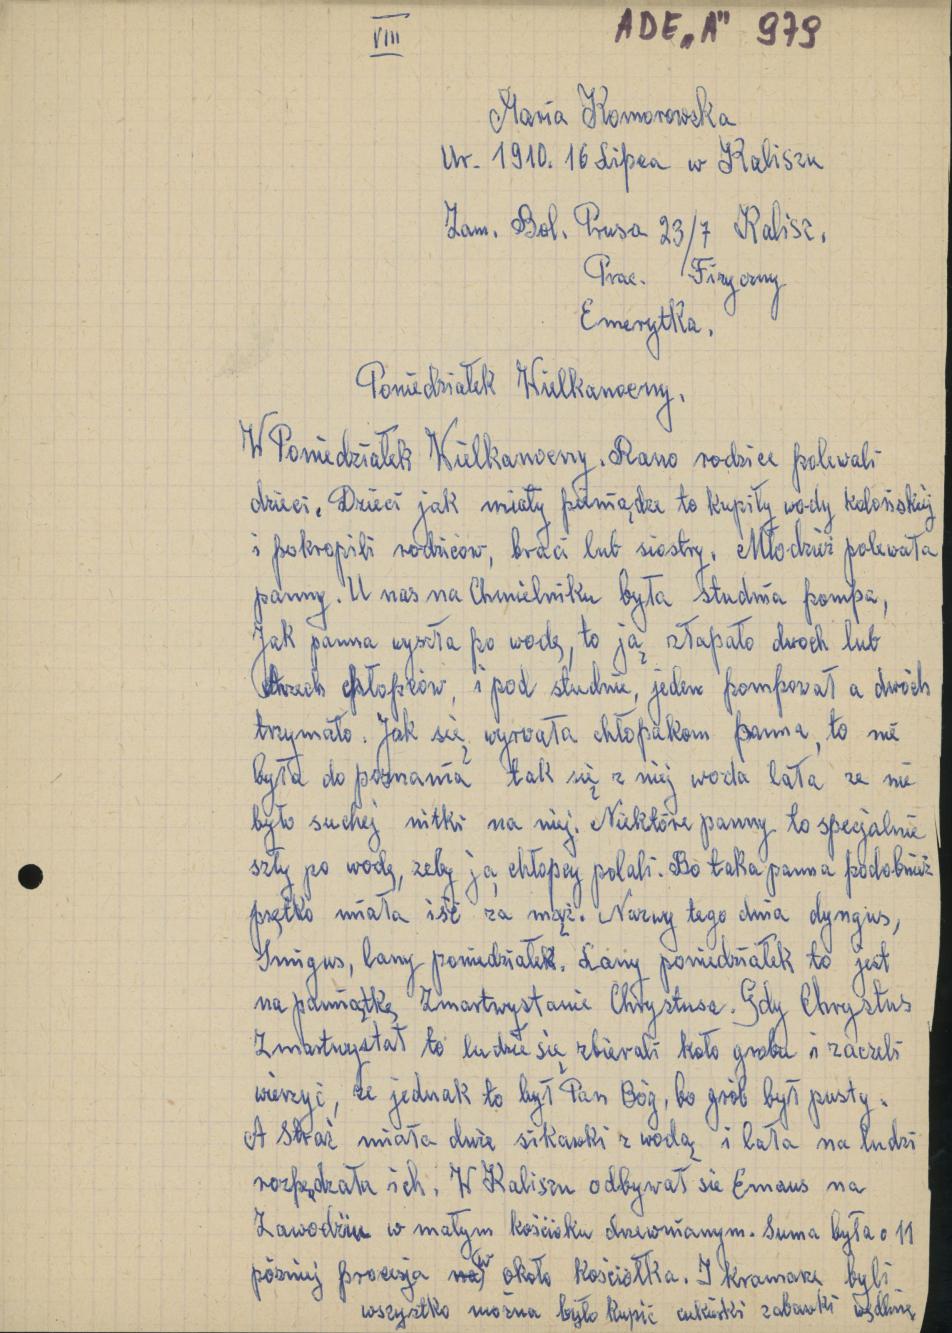 VIII
ADE „A" 979
Maria Komorowska
Ur. 1910. 16 Lipca w Kaliszu
Zam. Bol. Prusa 23/7 Kalisz.
Prac. Fizyczny
Emerytka.
Poniedziałek Wielkanocny.
W Poniedziałek Wielkanocny. Rano rodzice polewali
dzieci. Dzieci jak miały pieniądze to kupiły wody kolońskiej
i pokropili rodziców, braci lub siostry. Młodzież polewała
panny. U nas na Chmielniku była studnia pompa,
Jak panna wyszła po wodę, to ją złapało dwoch lub
trzech chłopców, i pod studnie, jeden pompował a dwóch
trzymało. Jak się wyrwała chłopakom panna, to nie
była do poznania tak się z niej woda lała ze nie
było suchej nitki na niej. Niektóre panny to specjalnie
szły po wodę, zeby ją chłopcy polali. Bo taka panna podobnież
prętko miała iść za mąż. Nazwy tego dnia dyngus,
Smigus, lany poniedziałek. Lany poniedziałek to jest
na pamiątkę Zmartwystanie Chrystusa. Gdy Chrystus
Zmartwystał to ludzie się zbierali koło grobu i zaczeli
wierzyć, ze jednak to był Pan Bóg, bo grób był pusty.
A Straż miała duże sikawki z wodą i lała na ludzi
rozpędzała ich. W Kaliszu odbywał sie Emaus na
Zawodziu w małym kościoku drewnianym. Suma była o 11
pózniej procesja w około kościołka. I kramarze byli
wszystko można było kupić cukierki zabawki wędlinę